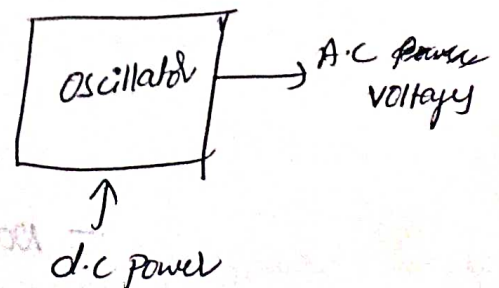 Oscillator
A.C
voltages
d.c power